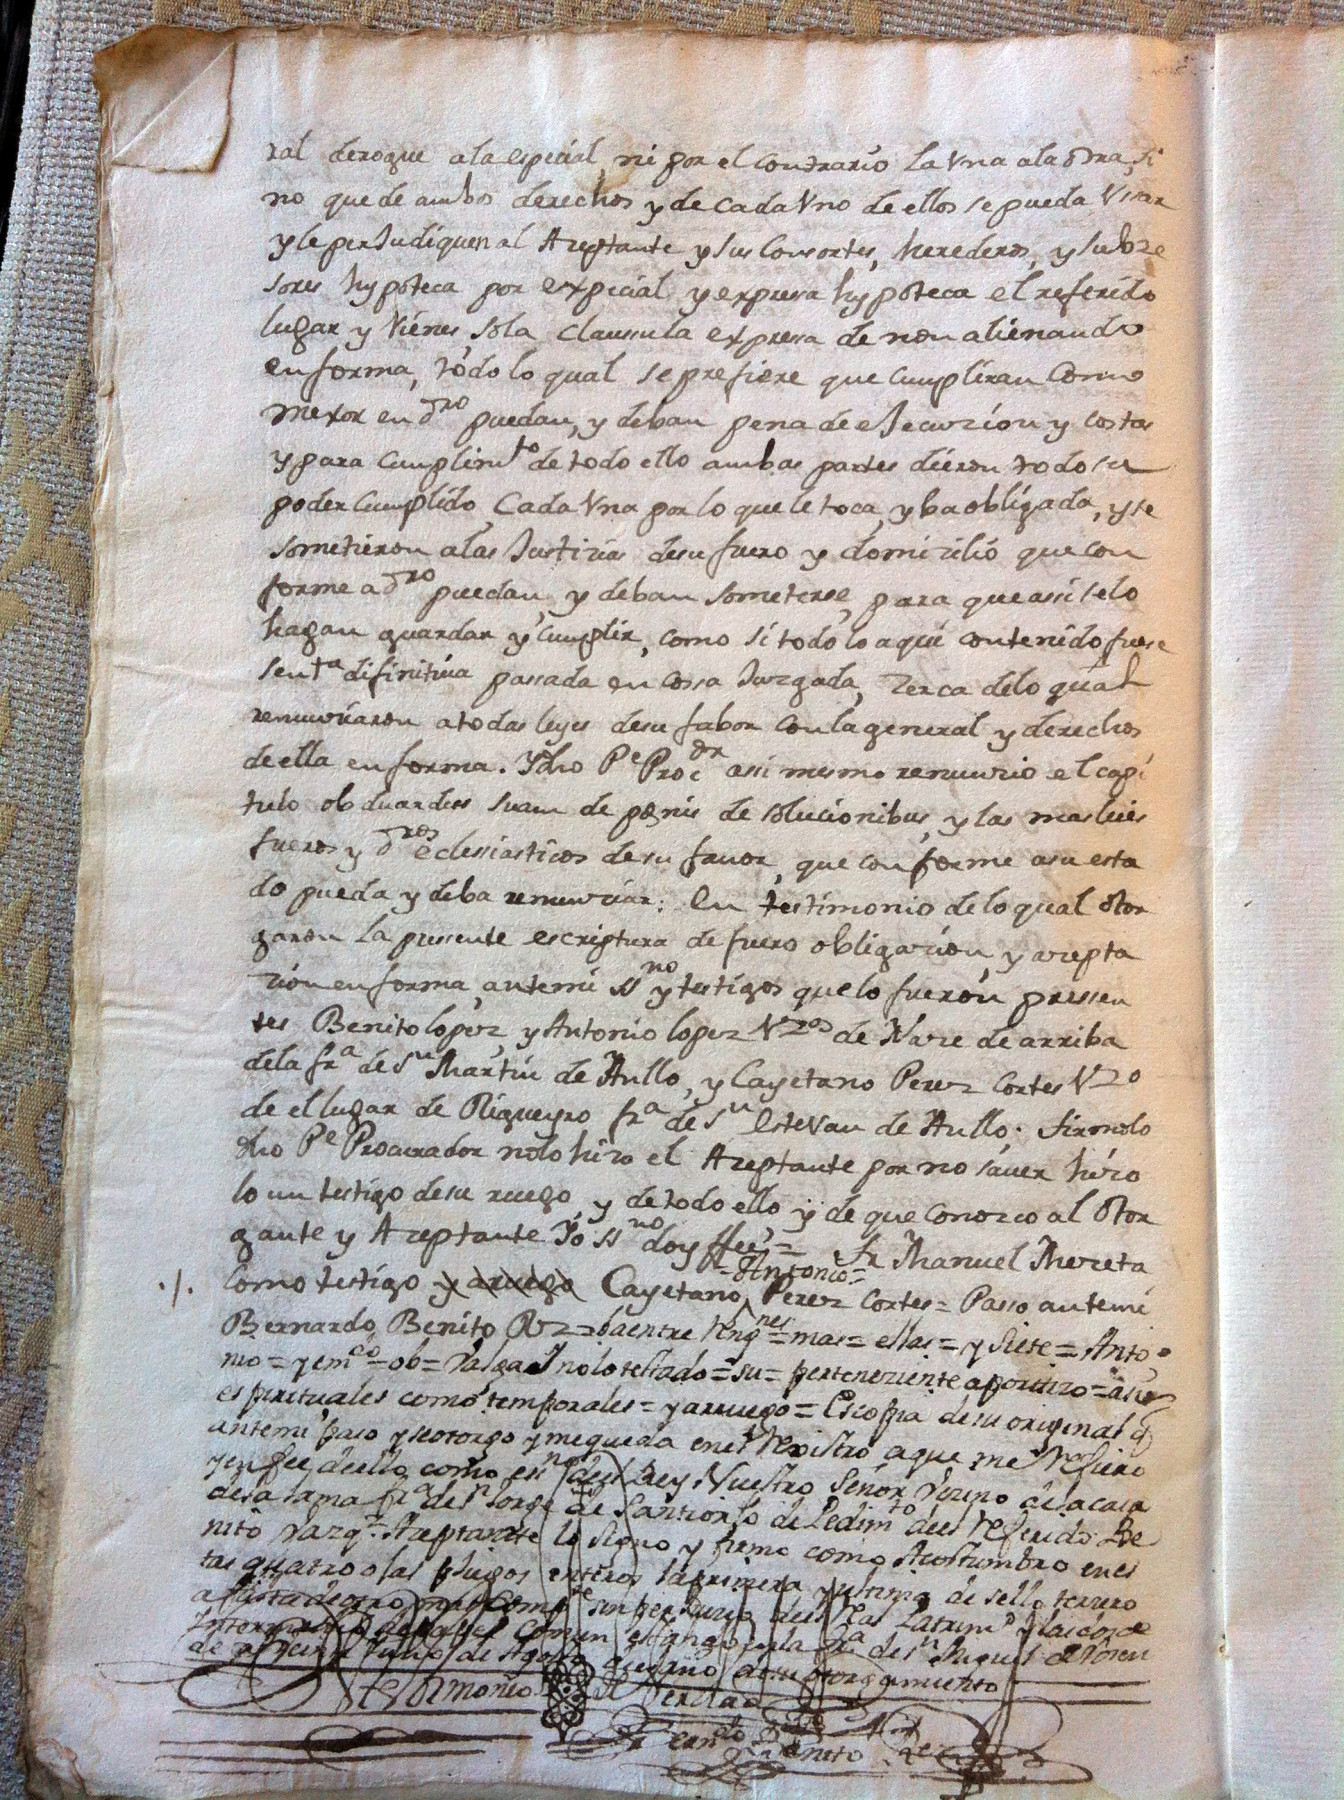 ral derogue a la especial, ni por el contrario la Vna a la otra, si
no que de ambos derechos y de cada Vno de ellos se pueda Vsar
y le perJudiquen al Azeptante y sus Consortes, herederos, y subze
sores hypoteca por expicial y expresa hypoteca el referido
lugar y vienes, sola clausula expresa de non alienando
en forma, todo lo qual se prefiere que cumpliran como
mexor en dro puedan, y deban pena de eJecuzion y costas
y para cumplimto de todo ello ambas partes dieron todo su
poder Cumplido, Cada Vna por lo que le toca, y ba obligada, y se
sometieron a las Justizias de su fuero y domizilio que con
forme a dro puedan, y deban someterse, para que assi se lo
hagan guardar y cumplir, como si todo lo aqui contenido fuese
senta difinitiua passada en cossa Juzgada, zerca de lo qual
renunziaron a todas leyes de su fabor con la general y derechos
de ella en forma. Y dho Pe Procdr assi mesmo renunzio el capi
tulo obduardus suam de penis de solucionibus, y las mas leies
fueros y dros eclesiasticos de su fauor, que conforme a su esta
do pueda y deba renunziar: en testimonio de lo qual otor
garon la pressente escriptura de fuero obligazion, y azepta
zion en forma, ante mi ssno y testigos que lo fueron pressen
tes Benito lopez, y Antonio lopez Vzos de Nare de arriba
de la fra de Sn Martin de Aullo, y Cayetano Perez Cortes Vzo
de el lugar de Rigueyro fra de Sn Estevan de Aullo; firmolo
dho Pe Procurador no lo hizo el Azeptante por no sauer hizo
lo un testigo de su ruego, y de todo ello y de que conozco al otor
gante y Azeptante Yo ssno doy ffee = Fr Manuel Mereta
=Antonio=
./. Como testigo y a ruego Cayetano Perez Cortes = Passo ante mi
Bernardo Benito Rz = ba entre Rengnes = mas = ellas = y siete = Anto
nio = y emdo = ob = Valga Y no lo testado = su = perteneziente
espirituales como temporales = y a ruego = Es copia de su original q
ante mi paso y se otorgo y me queda en el Rexistro a que me Refiero
y en fee de ello como esno del Rey Nuestro Señor Vezino de la casa
de la lama fra de Sn Jorge de Santiorjo de Pedimto del Referido Be
nito Vazqz Azeptante lo signo y firmo como Acostumbro en es
tas quatro ojas pliegos enteros la primera y ultima de sello terzero
Intermedio de papel comun estando en la fra de Sn Miguel de
de Agosto del año de su otorgamiento
Testimonio de Verdad
Bernardo Benito